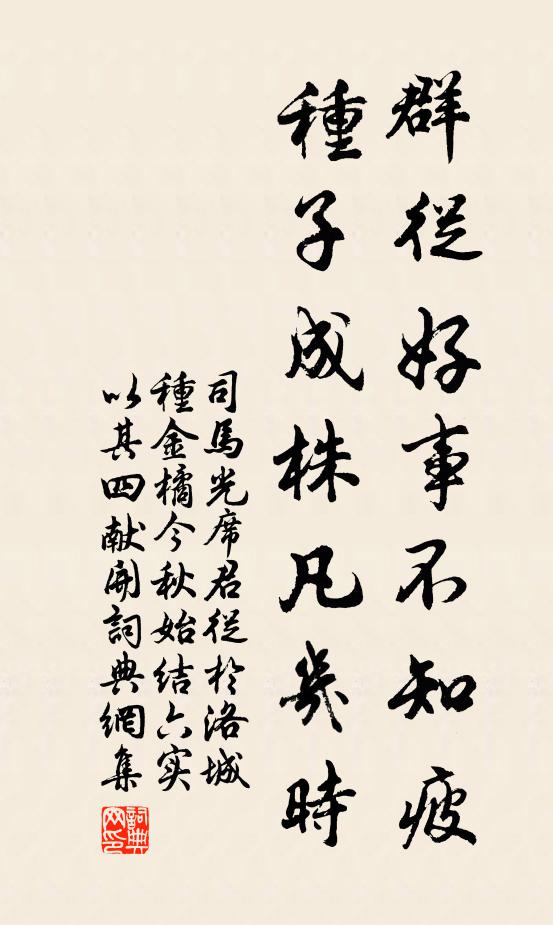 群從好事不知疲
種子成株凡幾時
司馬光席君從於洛城
種金橘今秋始結六实
以其四献開詞典網集
詞典
網印